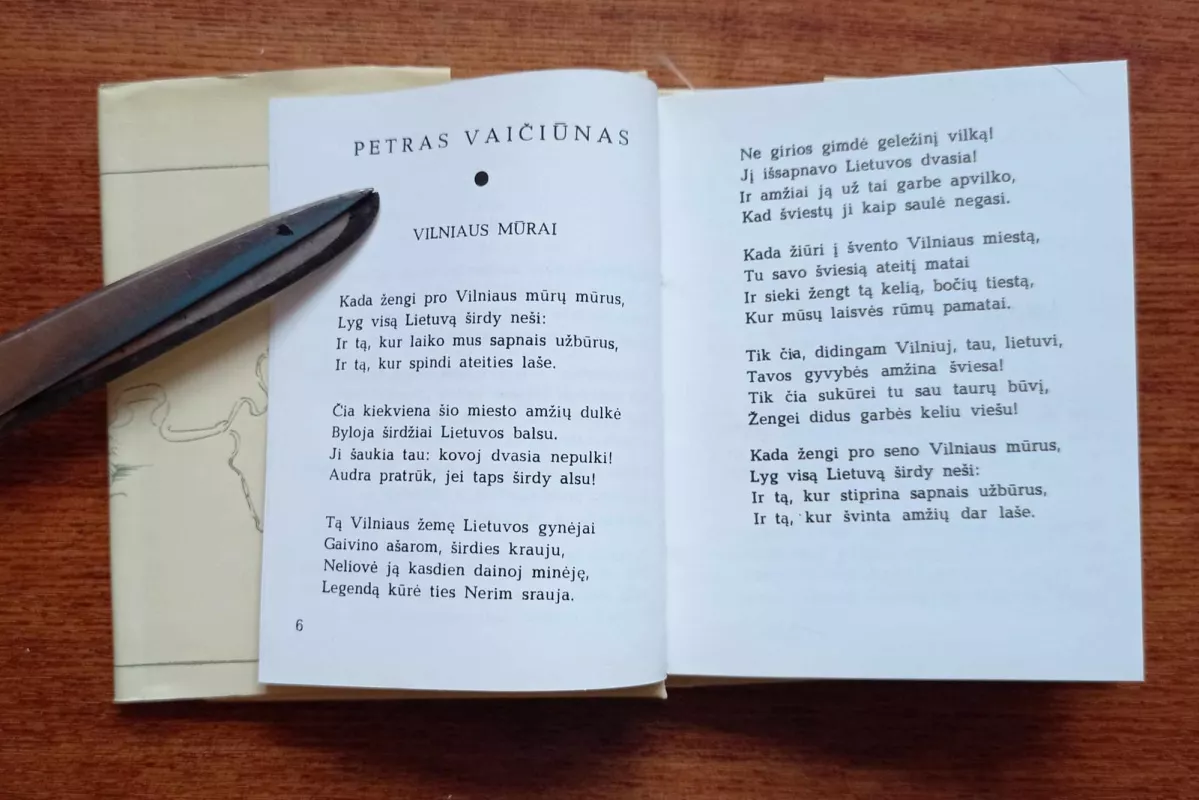 PETRAS VAIČIŪNAS
VILNIAUS MŪRAI
Kada žengi pro Vilniaus mūrų mūrus,
Lyg visą Lietuvą širdy neši:
Ir tą, kur laiko mus sapnais užbūrus,
Ir tą, kur spindi ateities laše.
Čia kiekviena šio miesto amžių dulkė
Byloja širdžiai Lietuvos balsu.
Ji šaukia tau: kovoj dvasia nepulki!
Audra pratrūk, jei taps širdy alsu!
Tą Vilniaus žemę Lietuvos gynėjai
Gaivino ašarom, širdies krauju,
Neliovė ją kasdien dainoj minėję,
Legendą kūrė ties Nerim srauja.
6
Ne girios gimdė geležinį vilką!
Jį išsapnavo Lietuvos dvasia!
Ir amžiai ją už tai garbe apvilko,
Kad šviestų ji kaip saulė negasi.
Kada žiūri į švento Vilniaus miestą,
Tu savo šviesią ateitį matai
Ir sieki žengt tą kelią, bočių tiestą,
Kur mūsų laisvės rūmų pamatai.
Tik čia, didingam Vilniuj, tau, lietuvi,
Tavos gyvybės amžina šviesa!
Tik čia sukūrei tu sau taurų būvį,
Žengei didus garbės keliu viešu!
Kada žengi pro seno Vilniaus mūrus,
Lyg visą Lietuvą širdy neši:
Ir tą, kur stiprina sapnais užbūrus,
Ir tą, kur švinta amžių dar laše.